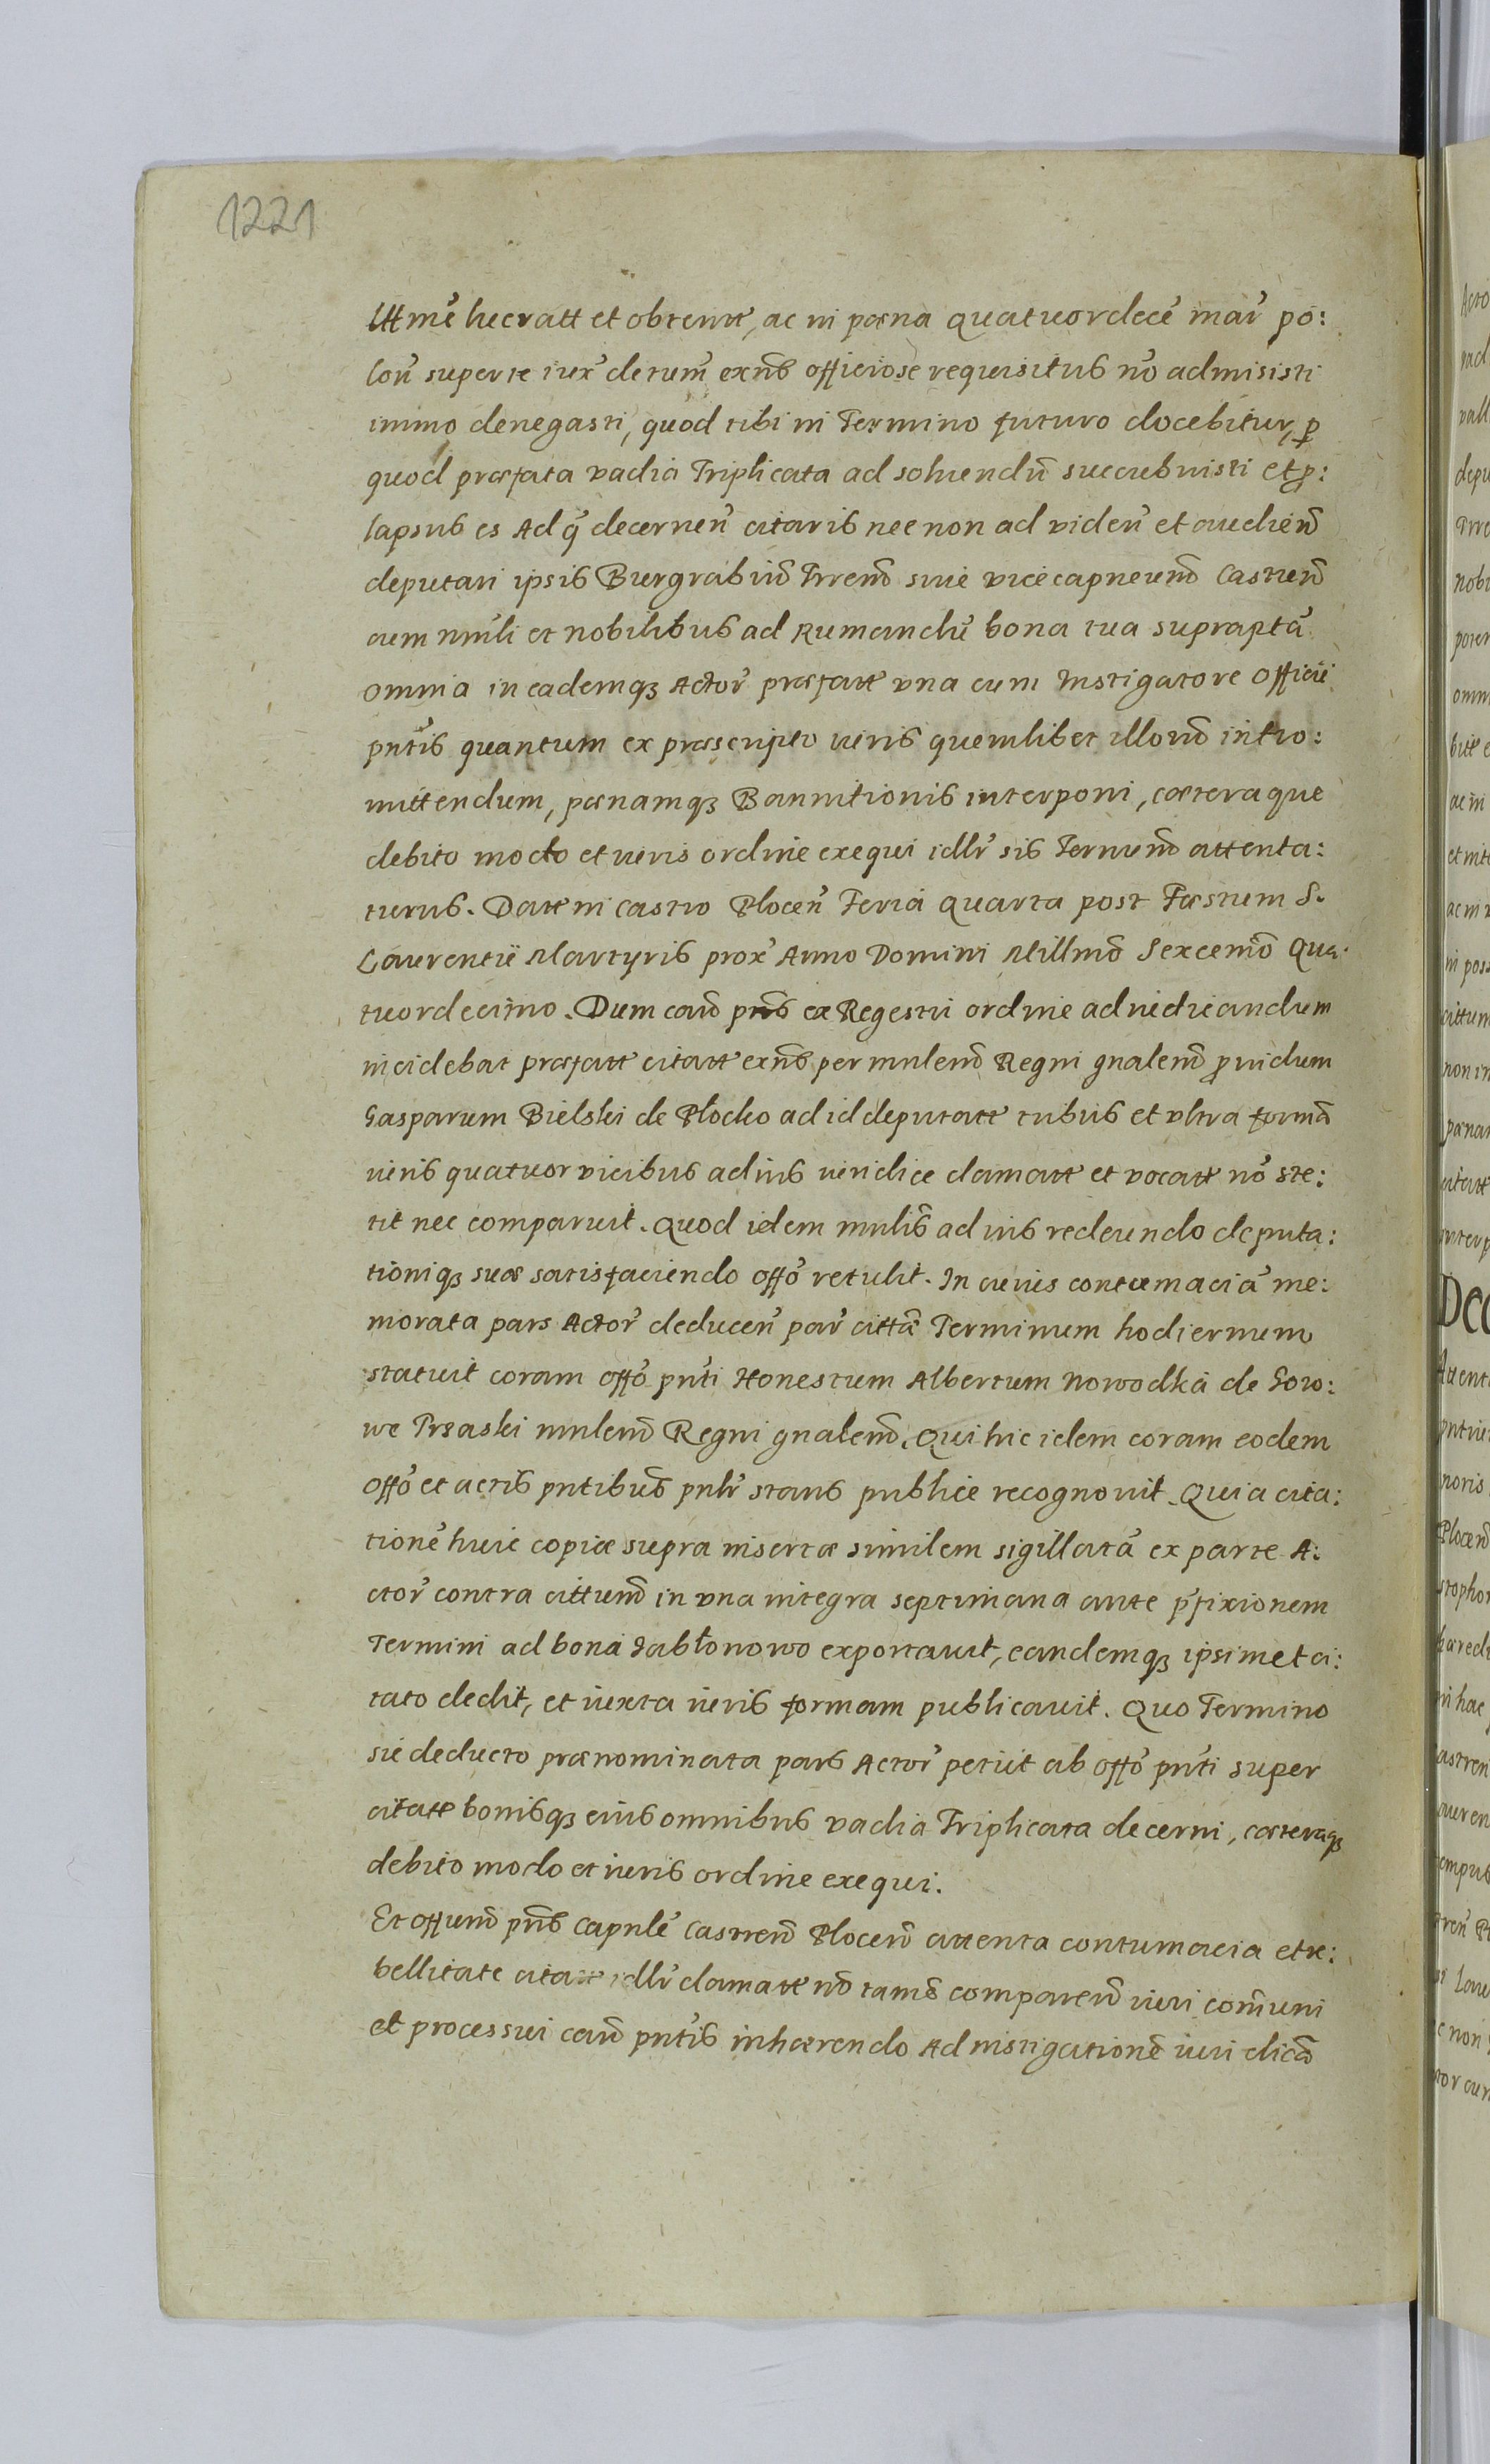 1221
Ittme lucratt et obtentt, ac in pœna quatuordecē mar̄ po:
lon̄ super te iux̄ decrum̄ exn̄s officiose requisitus nō admisisti
immo denegasti, quod tibi in Termino futuro docebitur, p
quod præfata vadia Triplicata ad soluendū succubuisti et p:
lapsus es Ad q̄ decernen̄ citaris nec non ad viden̄ et audien̄
deputari ipsis Burgrabiū Trren̄ siue vicecapneum̄ Castren̄
cum mn̄li et nobilibus ad Rumandū bona tua supraptā
omnia in eademq₃ Actor̄ præfatt vna cum Instigatore Officii
pn̄tis quantum ex præscripto iuris quemlibet illorū intro:
mittendum, pœnamq₃ Bannitionis interponi, cæteraque
debito modo et iuris ordine exequi idlr̄ sis Terminū attenta:
turus. Datt in Castro Plocen̄ Feria quarta post Fæstum S.
Laurentii Martyris prox̄ Anno Domini Millmō Sexcenmō Qua:
tuordecimo. Dum caū pn̄s ex Regestri ordine ad iudicandum
incidebat præfatt citatt exn̄s per mnlem̄ Regni gnalem̄ puidum
Gasparum Bielski de Płocko ad id deputatt tribus et vltra formā
iuris quatuor vicibus ad ius iuridice clamatt et vocatt nō ste:
tit nec comparuit. Quod idem mnlis̄ ad ius redeundo deputa:
tioniq₃ suæ satisfaciendo offō retulit. In cuius contumaciā me:
morata pars Actor̄ deducen̄ par̄ cittā Terminum hodiernum
statuit coram offō pn̄ti Honestum Albertum Nowodka de Goro:
we Praski mnlem̄ Regni gnalem̄. Qui hic idem coram eodem
offō et actis pntibus̄ pnlr̄ stans publice recognouit. Quia cita:
tionē huic copiæ supra insertæ similem sigillatā ex parte A:
ctor̄ contra cittum̄ in vna integra septimana ante pfixionem
Termini ad bona Jabłonowo exportauit, eandemq₃ ipsimet ci:
tato dedit, et iuxta iuris formam publicauit. Quo Termino
sic deducto prænominata pars Actor̄ petiit ab offō pn̄ti super
citatt bonisq₃ eius omnibus vadia Triplicata decerni, cæteraq₃
debito modo et iuris ordine exequi.
Et offium̄ pn̄s Capnlē Castren̄ Plocen̄ attenta contumacia et re:
bellitate citatt idlr̄ clamatt nō tamē comparen̄ iuri com̄uni
et processui cau̅ pn̄tis inhærendo Ad instigationē iuri dicā